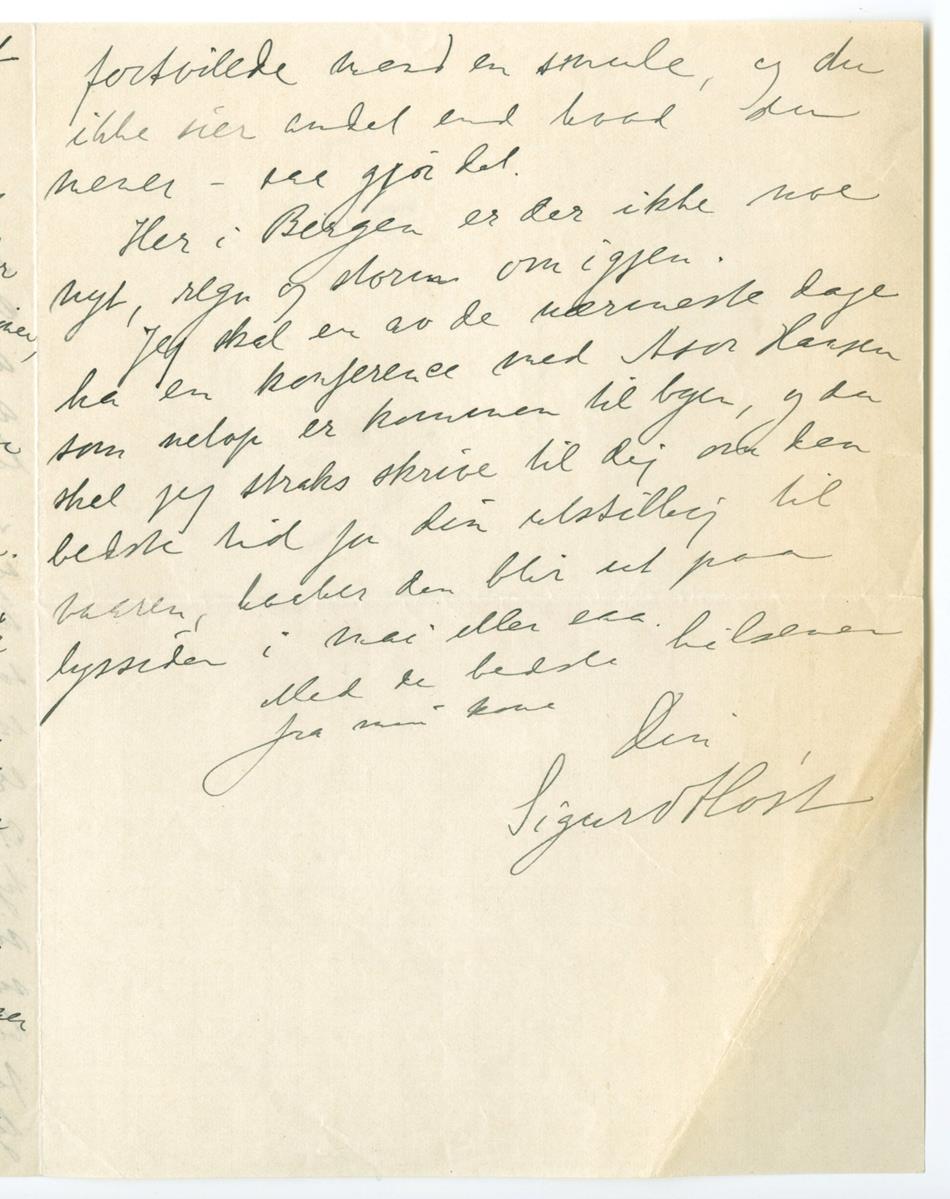 fortvilede mend en smule, og du
ikke sier andet end hvad du
mener – saa gjør det.
Her i Bergen er der ikke noe
nyt, regn og storm om igjen.
Jeg skal en av de nærmeste dage
ha en konference med Hansen
som netop er kommen til byen, og da
skal jeg straks skrive til dig om den
bedste tid for din utstilling til
vaaren, haaber den blir ut paa
lyssiden i mai eller saa.
Med de bedste hilsener
fra min kone
Din
Sigurd Høst